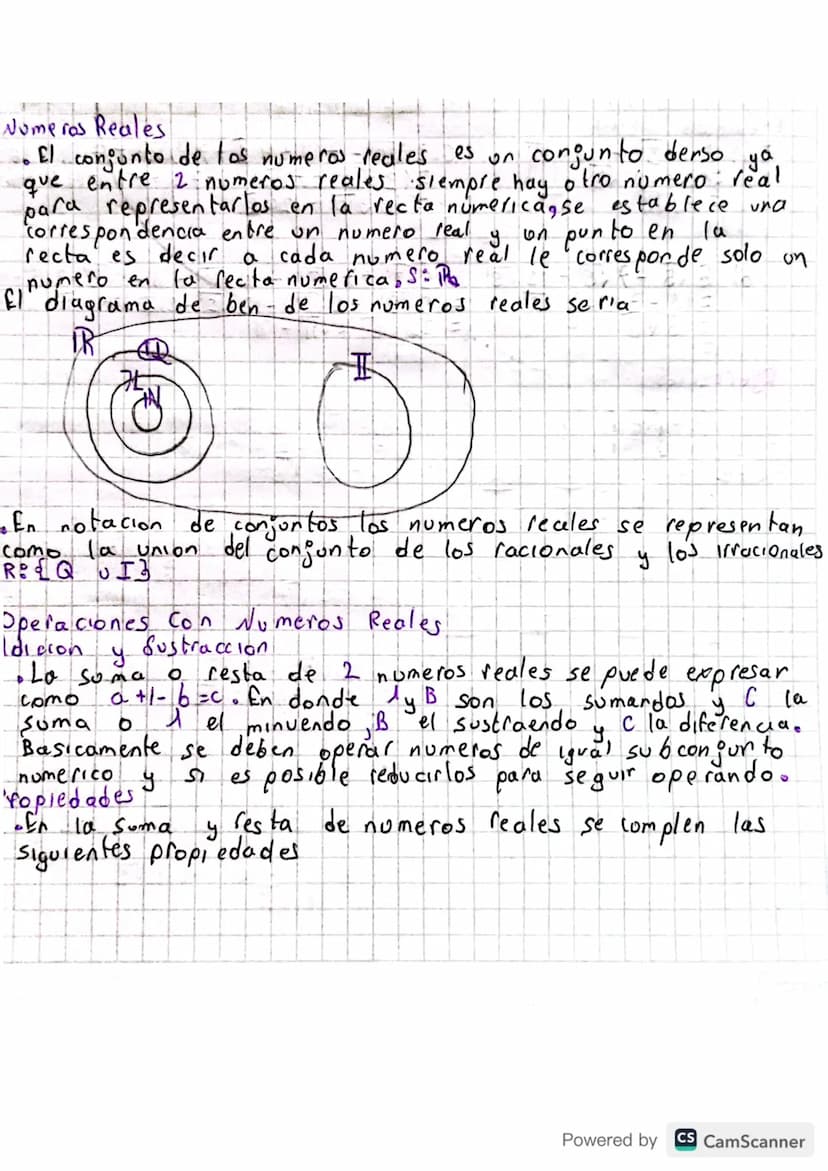 Numeros Reales
. El conjunto de los numeros reales es un conjunto denso ya
que entre 2 numeros reales siempre hay otro numero real
para representarlos en la recta numerica, se establece una
correspondencia entre un numero real y un punto en la
recta es decir a cada numero real le corresponde solo un
numero en la recta numerica, S:
El diagrama de ben de los numeros reales seria
R
Q
Z
N
II
. En notacion de conjuntos los numeros reales se representan
como la union del conjunto de los racionales y los irracionales
R: {Q U I}
Operaciones Con Numeros Reales
Idicion y Sustraccion
. La suma o resta de 2 numeros reales se puede expresar
como a +/- b = c. En donde A y B son los sumandos y C la
suma o A el minuendo, B el sustraendo y C la diferencia.
Basicamente se deben operar numeros de igual subconjunto
numerico y si es posible reducirlos para seguir operando.
ropiedades
. En la suma y resta de numeros reales se complen las
siguientes propiedades
Powered by CS CamScanner